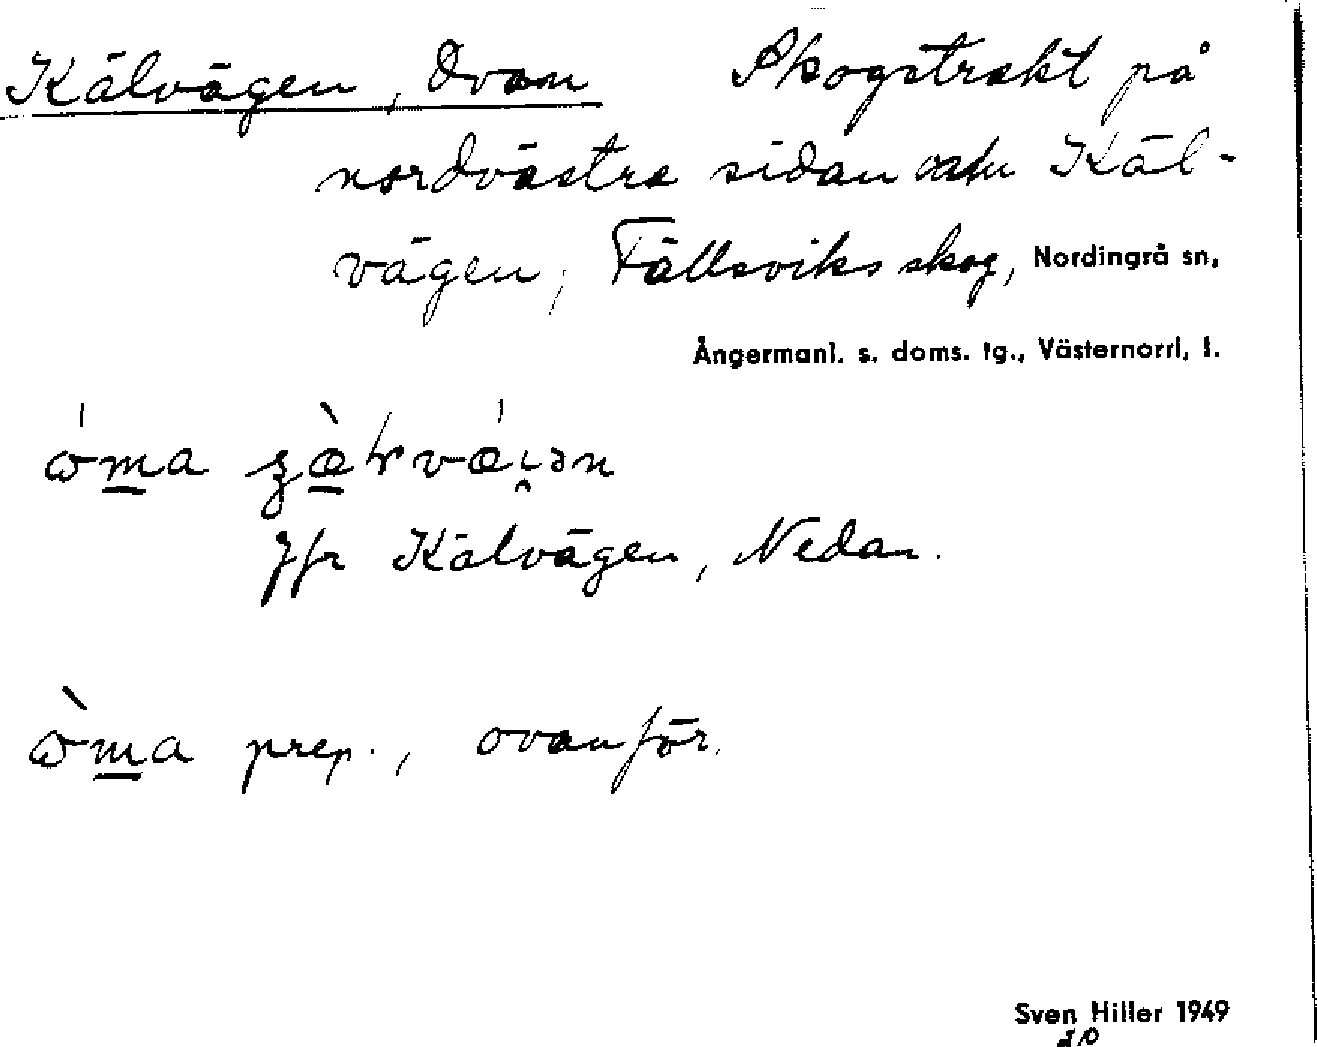 Kälvägen, Ovan Skogstrakt på
nordvästra sidan Käl-
vägen, Fällsviks skog, Nordingrå sn,
Ångermanl. s. doms. tg., Västernorrl, l.
Jfr Kälvägen, Nedan.
prep., ovanför.
Sven Hiller 1949